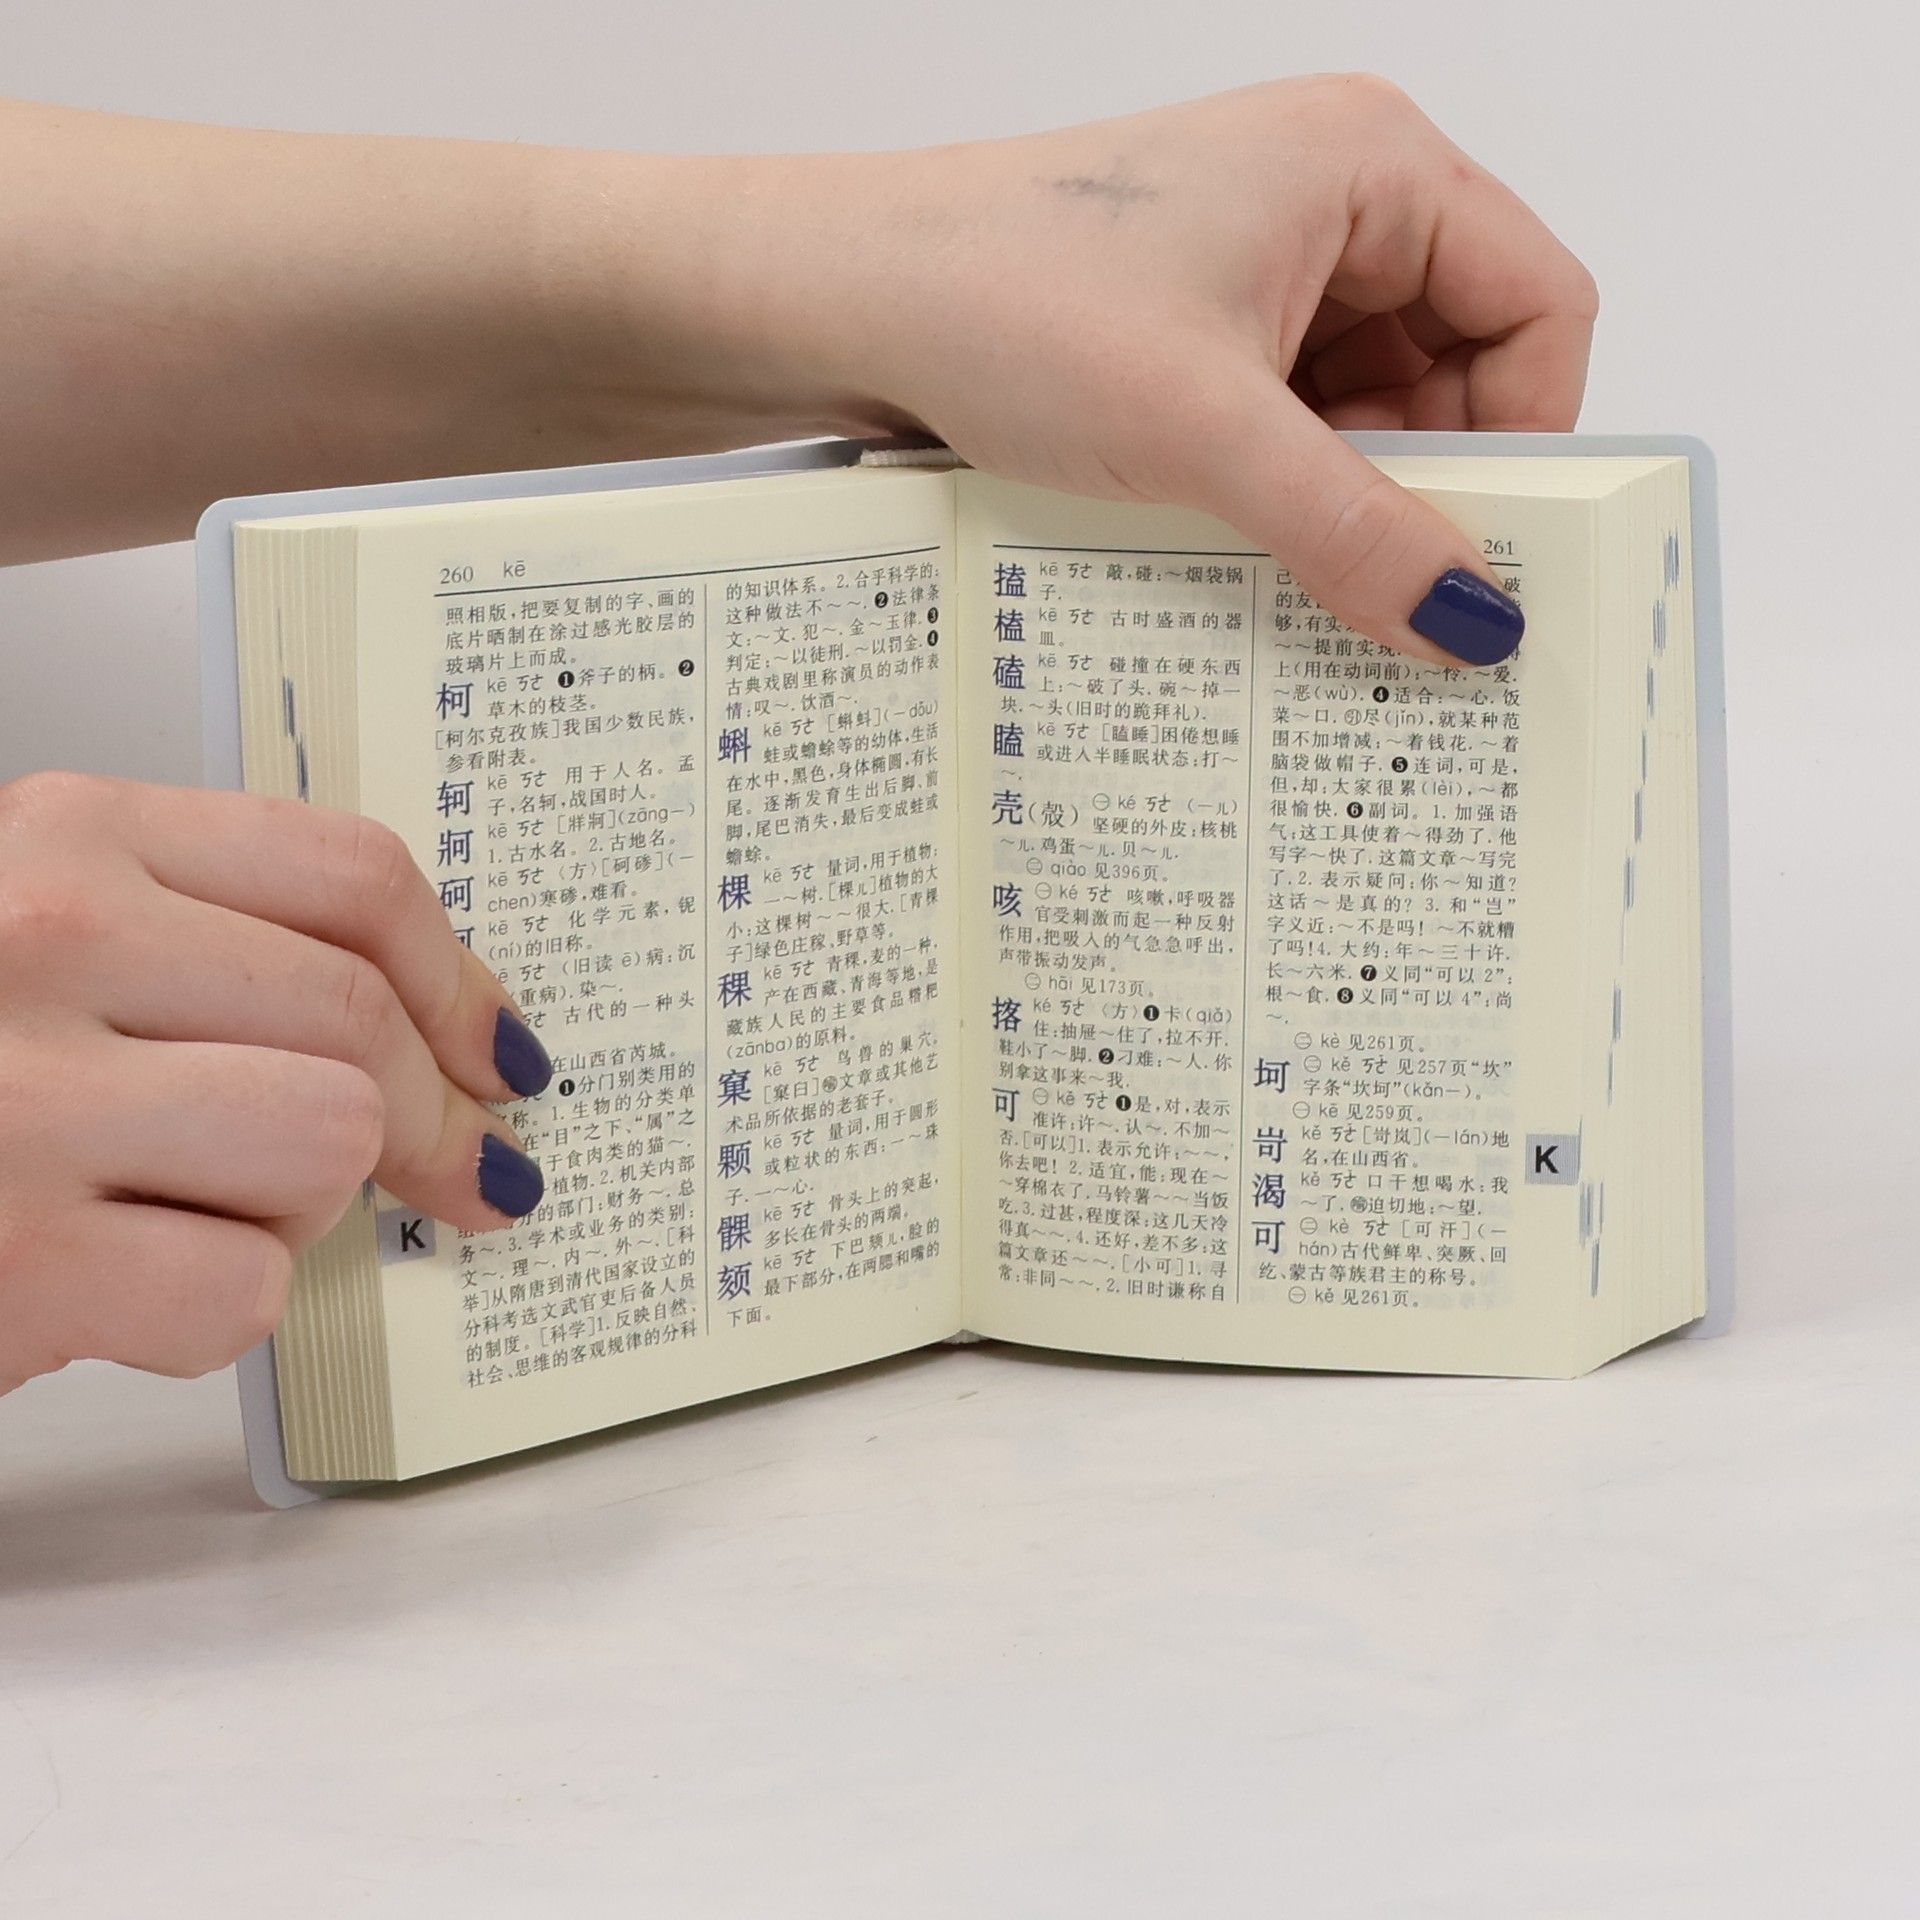 260 kē
照相版,把要复制的字、画的
底片晒制在涂过感光胶层的
玻璃片上而成。
柯 kē ㄎㄜ ❶斧子的柄。❷
草木的枝茎。
[柯尔克孜族]我国少数民族,
参看附表。
轲 kē ㄎㄜ 用于人名。孟
子,名轲,战国时人。
牁 kē ㄎㄜ [牂牁](zāng—)
1.古水名。2.古地名。
砢 kē ㄎㄜ 〈方〉[砢碜](—
chen)寒碜,难看。
kē ㄎㄜ 化学元素,铌
(ní)的旧称。
kē ㄎㄜ (旧读 ē)病:沉
(重病).染~.
ㄎㄜ 古代的一种头
在山西省芮城。
❶分门别类用的
称。1.生物的分类单
在“目”之下、“属”之
于食肉类的猫~.
植物.2.机关内部
分的部门:财务~.总
务~.3.学术或业务的类别:
文~.理~.内~.外~.[科
举]从隋唐到清代国家设立的
分科考选文武官吏后备人员
的制度。[科学]1.反映自然、
社会、思维的客观规律的分科
K
的知识体系。2.合乎科学的:
这种做法不~~.❷法律条
文:~文.犯~.金~玉律.❸
判定:~以徒刑.~以罚金.❹
古典戏剧里称演员的动作表
情:叹~.饮酒~.
蝌 kē ㄎㄜ [蝌蚪](—dǒu)
蛙或蟾蜍等的幼体,生活
在水中,黑色,身体椭圆,有长
尾。逐渐发育生出后脚、前
脚,尾巴消失,最后变成蛙或
蟾蜍。
棵 kē ㄎㄜ 量词,用于植物:
一~树.[棵儿]植物的大
小:这棵树~~很大.[青棵
子]绿色庄稼、野草等。
稞 kē ㄎㄜ 青稞,麦的一种,
产在西藏、青海等地,是
藏族人民的主要食品糌粑
(zānba)的原料。
窠 kē ㄎㄜ 鸟兽的巢穴。
[窠臼]㊙文章或其他艺
术品所依据的老套子。
颗 kē ㄎㄜ 量词,用于圆形
或粒状的东西:一~珠
子.一~心.
髁 kē ㄎㄜ 骨头上的突起,
多长在骨头的两端。
颏 kē ㄎㄜ 下巴颏儿,脸的
最下部分,在两腮和嘴的
下面。
261
搕 kē ㄎㄜ 敲,碰:~烟袋锅
子.
榼 kē ㄎㄜ 古时盛酒的器
皿。
磕 kē ㄎㄜ 碰撞在硬东西
上:~破了头.碗~掉一
块.~头(旧时的跪拜礼).
瞌 kē ㄎㄜ [瞌睡]困倦想睡
或进入半睡眠状态:打~
~.
壳(殼) ㊀ ké ㄎㄜˊ (—儿)
坚硬的外皮:核桃
~儿.鸡蛋~儿.贝~儿.
㊁ qiào 见396页。
咳 ㊀ ké ㄎㄜˊ 咳嗽,呼吸器
官受刺激而起一种反射
作用,把吸入的气急急呼出,
声带振动发声。
㊁ hāi 见173页。
揢 ké ㄎㄜˊ 〈方〉❶卡(qiǎ)
住:抽屉~住了,拉不开.
鞋小了~脚.❷刁难:~人.你
别拿这事来~我.
可 ㊀ kě ㄎㄜˇ ❶是,对,表示
准许:许~.认~.不加~
否.[可以]1.表示允许:~~,
你去吧! 2.适宜,能:现在~
~穿棉衣了.马铃薯~~当饭
吃.3.过甚,程度深:这几天冷
得真~~.4.还好,差不多:这
篇文章还~~.[小可]1.寻
常:非同~~.2.旧时谦称自
己 破
的友
够,有实
~~提前实现.
上(用在动词前):~怜.~爱.
~恶(wù).❹适合:~心.饭
菜~口.㊂尽(jǐn),就某种范
围不加增减:~着钱花.~着
脑袋做帽子.❺连词,可是,
但,却:大家很累(lèi),~都
很愉快.❻副词。1.加强语
气:这工具使着~得劲了.他
写字~快了.这篇文章~写完
了.2.表示疑问:你~知道?
这话~是真的? 3.和“岂”
字义近:~不是吗! ~不就糟
了吗!4.大约:年~三十许.
长~六米.❼义同“可以 2”:
根~食.❽义同“可以 4”:尚
~.
㊁ kè 见261页。
坷 ㊁ kě ㄎㄜˇ 见257页“坎”
字条“坎坷”(kǎn—)。
㊀ kē 见259页。
岢 kě ㄎㄜˇ [岢岚](—lán)地
名,在山西省。
渴 kě ㄎㄜˇ 口干想喝水:我
~了.㊙迫切地:~望.
可 ㊁ kè ㄎㄜˋ [可汗](—
hán)古代鲜卑、突厥、回
纥、蒙古等族君主的称号。
㊀ kě 见261页。
K